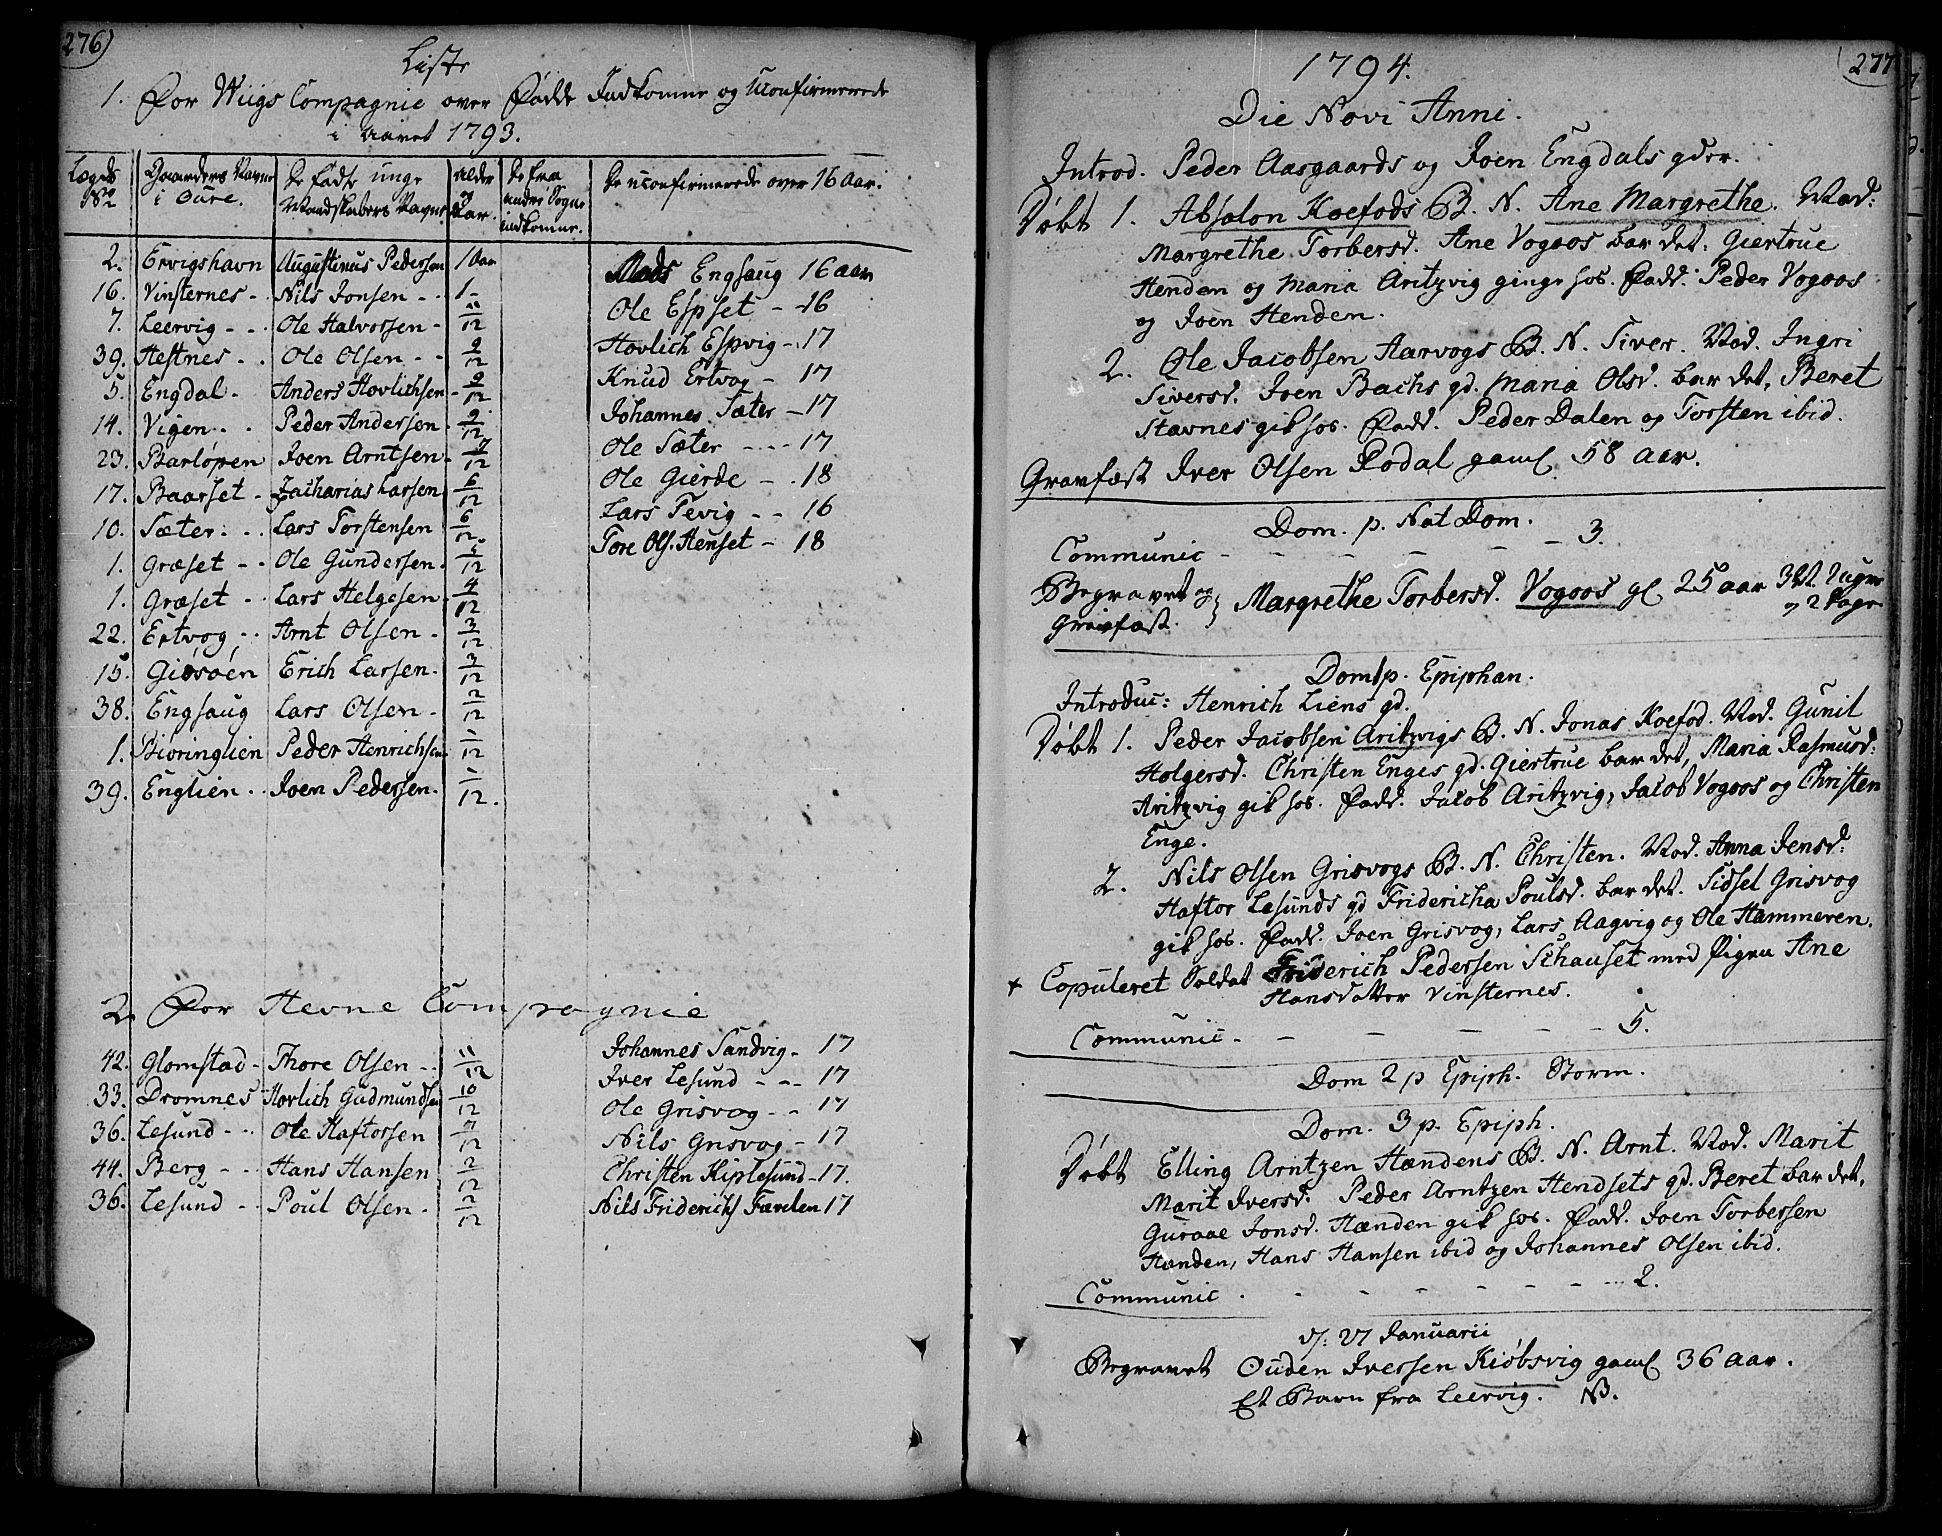 276)
Liste
1. For Wiigs Compagnie over Fødde Indkomne og Uconfirmerede
i Aaret 1793.
Lægds No | Gaardens Navne i Oure. | De fødte unge Mandskabers Navne | Alder og Aar. | De fra andre Sogne indkomne. | De uconfirmerede over 16 Aar.
2. Ervigshavn | Augustinus Pedersen | 1 Aar | Mads Engsaug 16 aar
16. Vinsternes - . | Nils Jonsen - . | 1 - | Ole Espset - 16
7. Leervig - - . | Ole Halvorsen - | 11/12 | Hovlich Espvig - 17
39. Hestnes - . | Ole Olsen - - | 9/12 | Knud Ertvog - 17
5. Engdal - | Anders Hovlichsen - | 9/12 | Johannes Sæter - 17
14. Vigen - . | Peder Andersen - | 9/12 | Ole Sæter - - - 17
23. Barløpen | Joen Arntsen - | 7/12 | Ole Gierde - . 18
17. Baarset - | Zacharias Larsen | 6/12 | Lars Tevig - - 16
10. Sæter - . | Lars Torstensen | 6/12 | Tore Ols. Henset - 18
1. Græset - - | Ole Gundersen - | /12
1. Græset - | Lars Helgesen - | 4/12
22. Ertvog - - | Arnt Olsen - | 3/12
15. Giøsøen | Erich Larsen - | 3/12
38. Engsaug | Lars Olsen - | 2/12
1. Bioringlien | Peder Henrichsen | 1/12
39. Englien - . | Joen Pedersen - | 1/12.
2. For Hevne Compagnie
42. Glomstad - | Thore Olsen - . | 11/12 | Johannes Sandvig - 17
33. Dromnes | Hovlich Gudmundsen | 10/12 | Iver Lesund - - - 17
36. Lesund - - | Ole Haftorsen | 7/12 | Ole Grisvog - - 17
44. Berg - - | Hans Hansen | 2/12 | Nils Grisvog - 17
36. Lesund - - | Poul Olsen - | 2/12 | Christen Kiplesund - 17.
Nils Friderichs Færelen 17
277
1794.
Die Novi Anni.
Introd. Peder Aasgaards og Joen Engdals qder.
Døbt 1. Absolon Koefods B. N. Ane Margrethe. Mod:
Margrethe Torbersd. Ane Vogoos bar det. Giertrue
Henden og Maria Aritzvig ginge hos. Fadd: Peder Vogoos
og Joen Henden.
2. Ole Jacobsen Aarvogs B. N. Siver. Mod. Ingri
Siversd. Joen Bachs qd. Maria Olsd. bar det, Beret
Stavnes gik hos. Fadd. Peder Dalen og Torsten ibid.
Gravfæst Iver Olsen Rodal gaml 58 aar.
Dom. p. Nat Dom.
Communic - - - - - - 3.
Begravet og
Gravfæst. } Margrethe Torbersd. Vogoos gl 25 aar 32 Uger
og 2 Dage
Dom 1 p. Epiphan.
Introduc: Henrich Liens qd.
Døbt 1. Peder Jacobsen Aritzvigs B. N. Jonas Koefod. Mod. Gunil
Holgersd. Christen Enges qd. Giertrue bar det, Maria Rasmusd:
Aritzvig gik hos. Fadd. Jacob Aritzvig, Jacob Vogoos og Christen
Enge.
2. Nils Olsen Grisvogs B. N. Christen. Mod. Anna Jensd:
Haftor Lesunds qd Fridericha Poulsd. bar det. Sidsel Grisvog
gik hos. Fadd. Joen Grisvog, Lars Aagvig og Ole Hammeren.
+ Copuleret Soldat Friderich Pedersen Schauset med Pigen Ane
Hansdatter Vinsternes.
Communic - - - - - - 5.
Dom 2 p Epiph. Storm.
Dom. 3 p. Epiph.
Døbt Elling Arntzen Hændens B. N. Arnt. Mod. Marit
Marit Iversd. Peder Arntzen Hendsets qd. Beret bar det,
Guroae Jonsd. Hænden gik hos. Fadd. Joen Torbersen
Hænden, Hans Hansen ibid og Johannes Olsen ibid.
Communic . - - - - - ... 2.
d. 27 Januarii
Begravet Ouden Iversen Kiøbsvig gaml 36 aar.
Et Barn fra Leervig. NB.